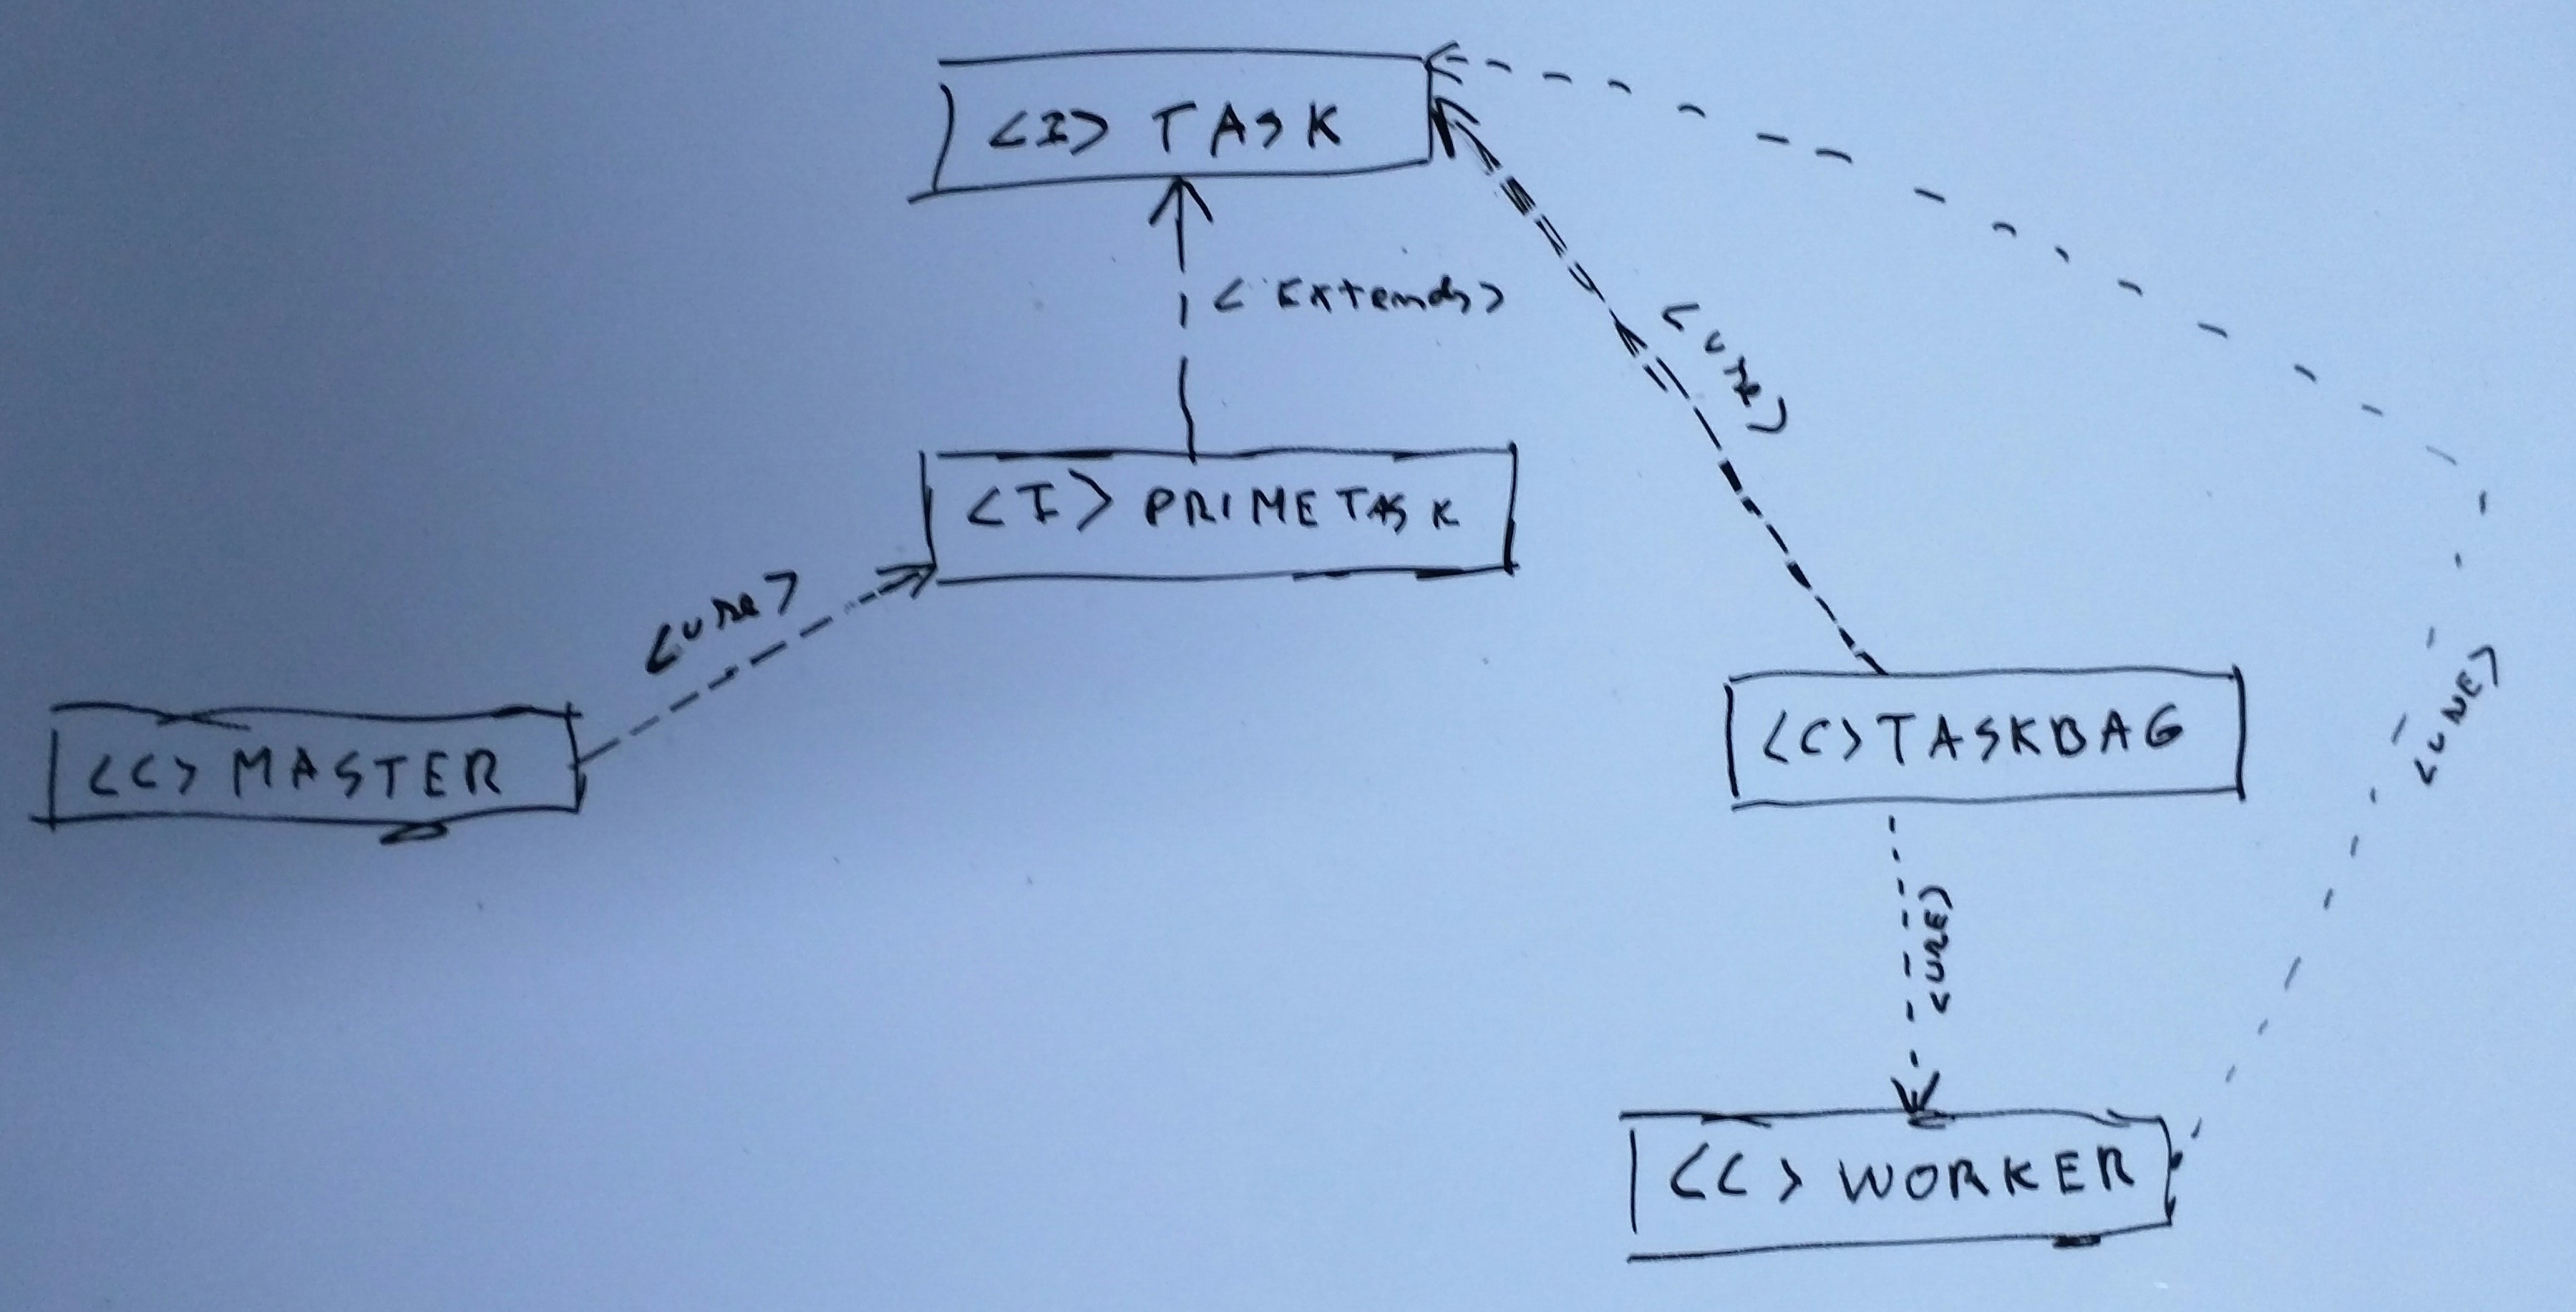 <I> TASK
<Extends>
<use>
<I> PRIMETASK
<use>
<C> MASTER
<C> TASKBAG
<USE>
<USE>
<C> WORKER